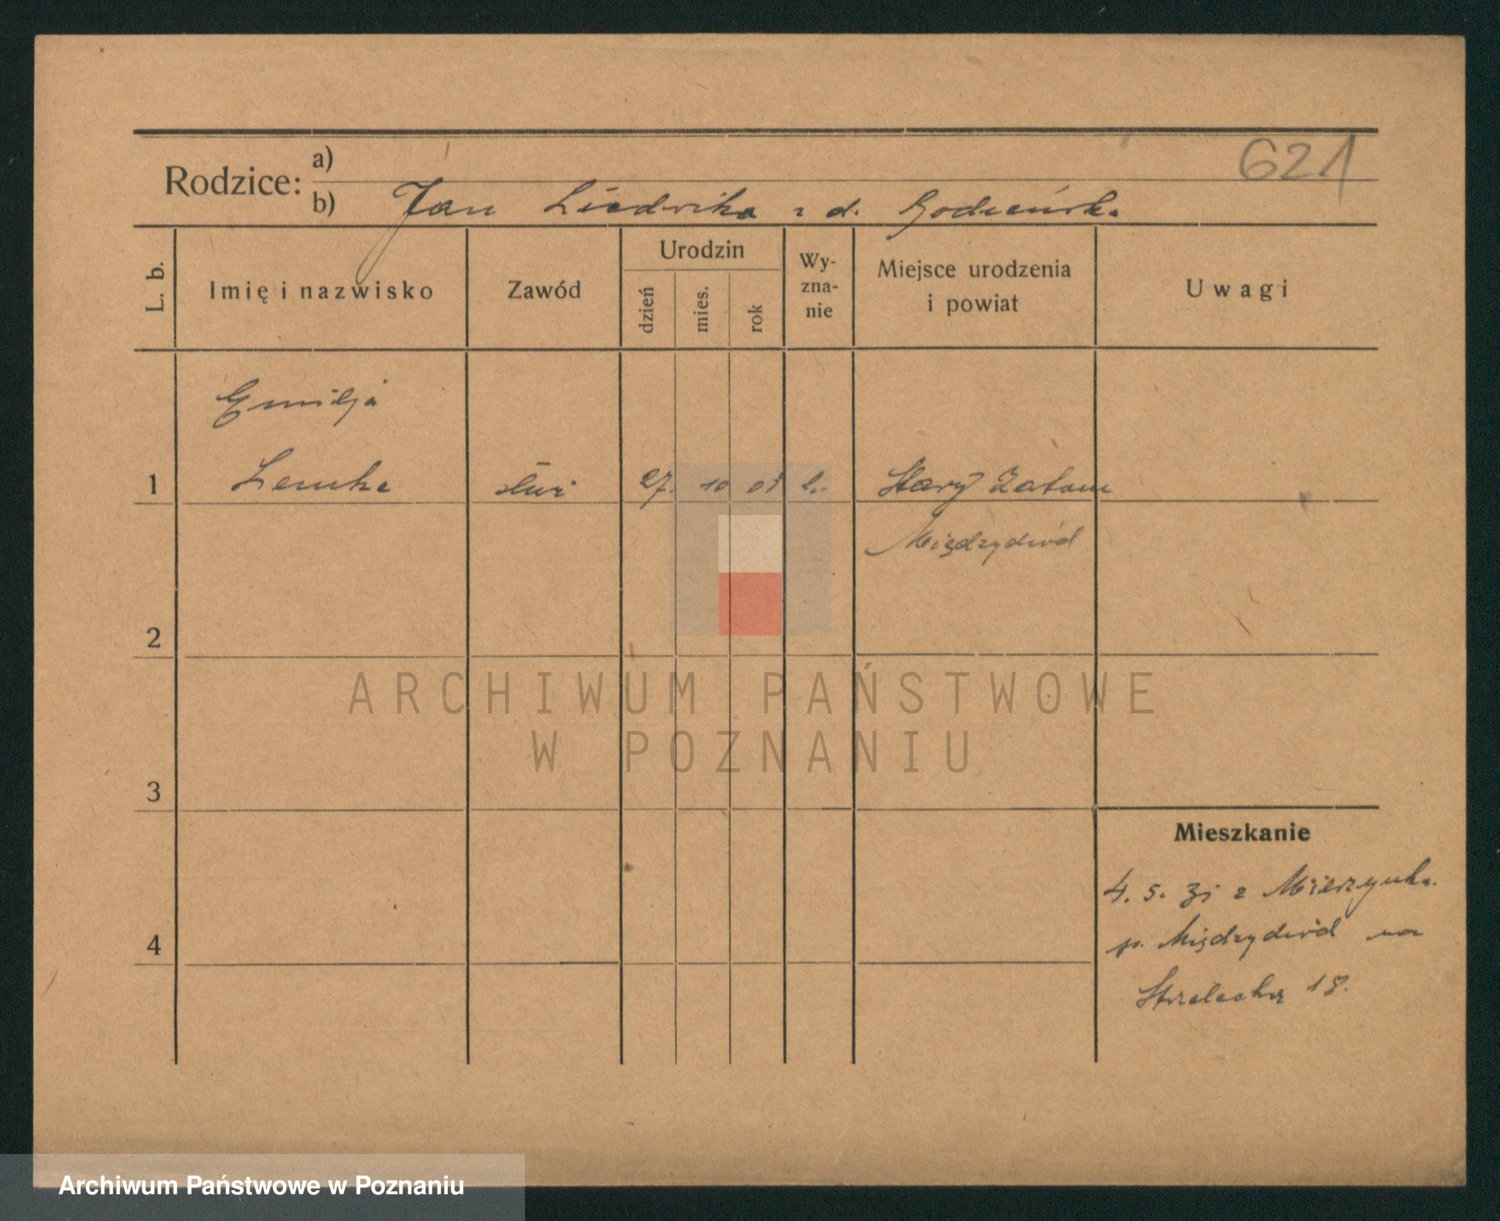 621
Rodzice: a)
b) Jan Ludwika z d. Godzeńska
L. b.
Imię i nazwisko
Zawód
Urodzin
dzień
mies.
rok
Wy-
zna-
nie
Miejsce urodzenia
i powiat
Uwagi
Emilja
1 Lemke 27. 10 Stary Zatom
Międzychód
2
3
4
Mieszkanie
4. 5. z
p. Międzychód na
Strzelecka 18.
ARCHIWUM PAŃSTWOWE
W POZNANIU
Archiwum Państwowe w Poznaniu